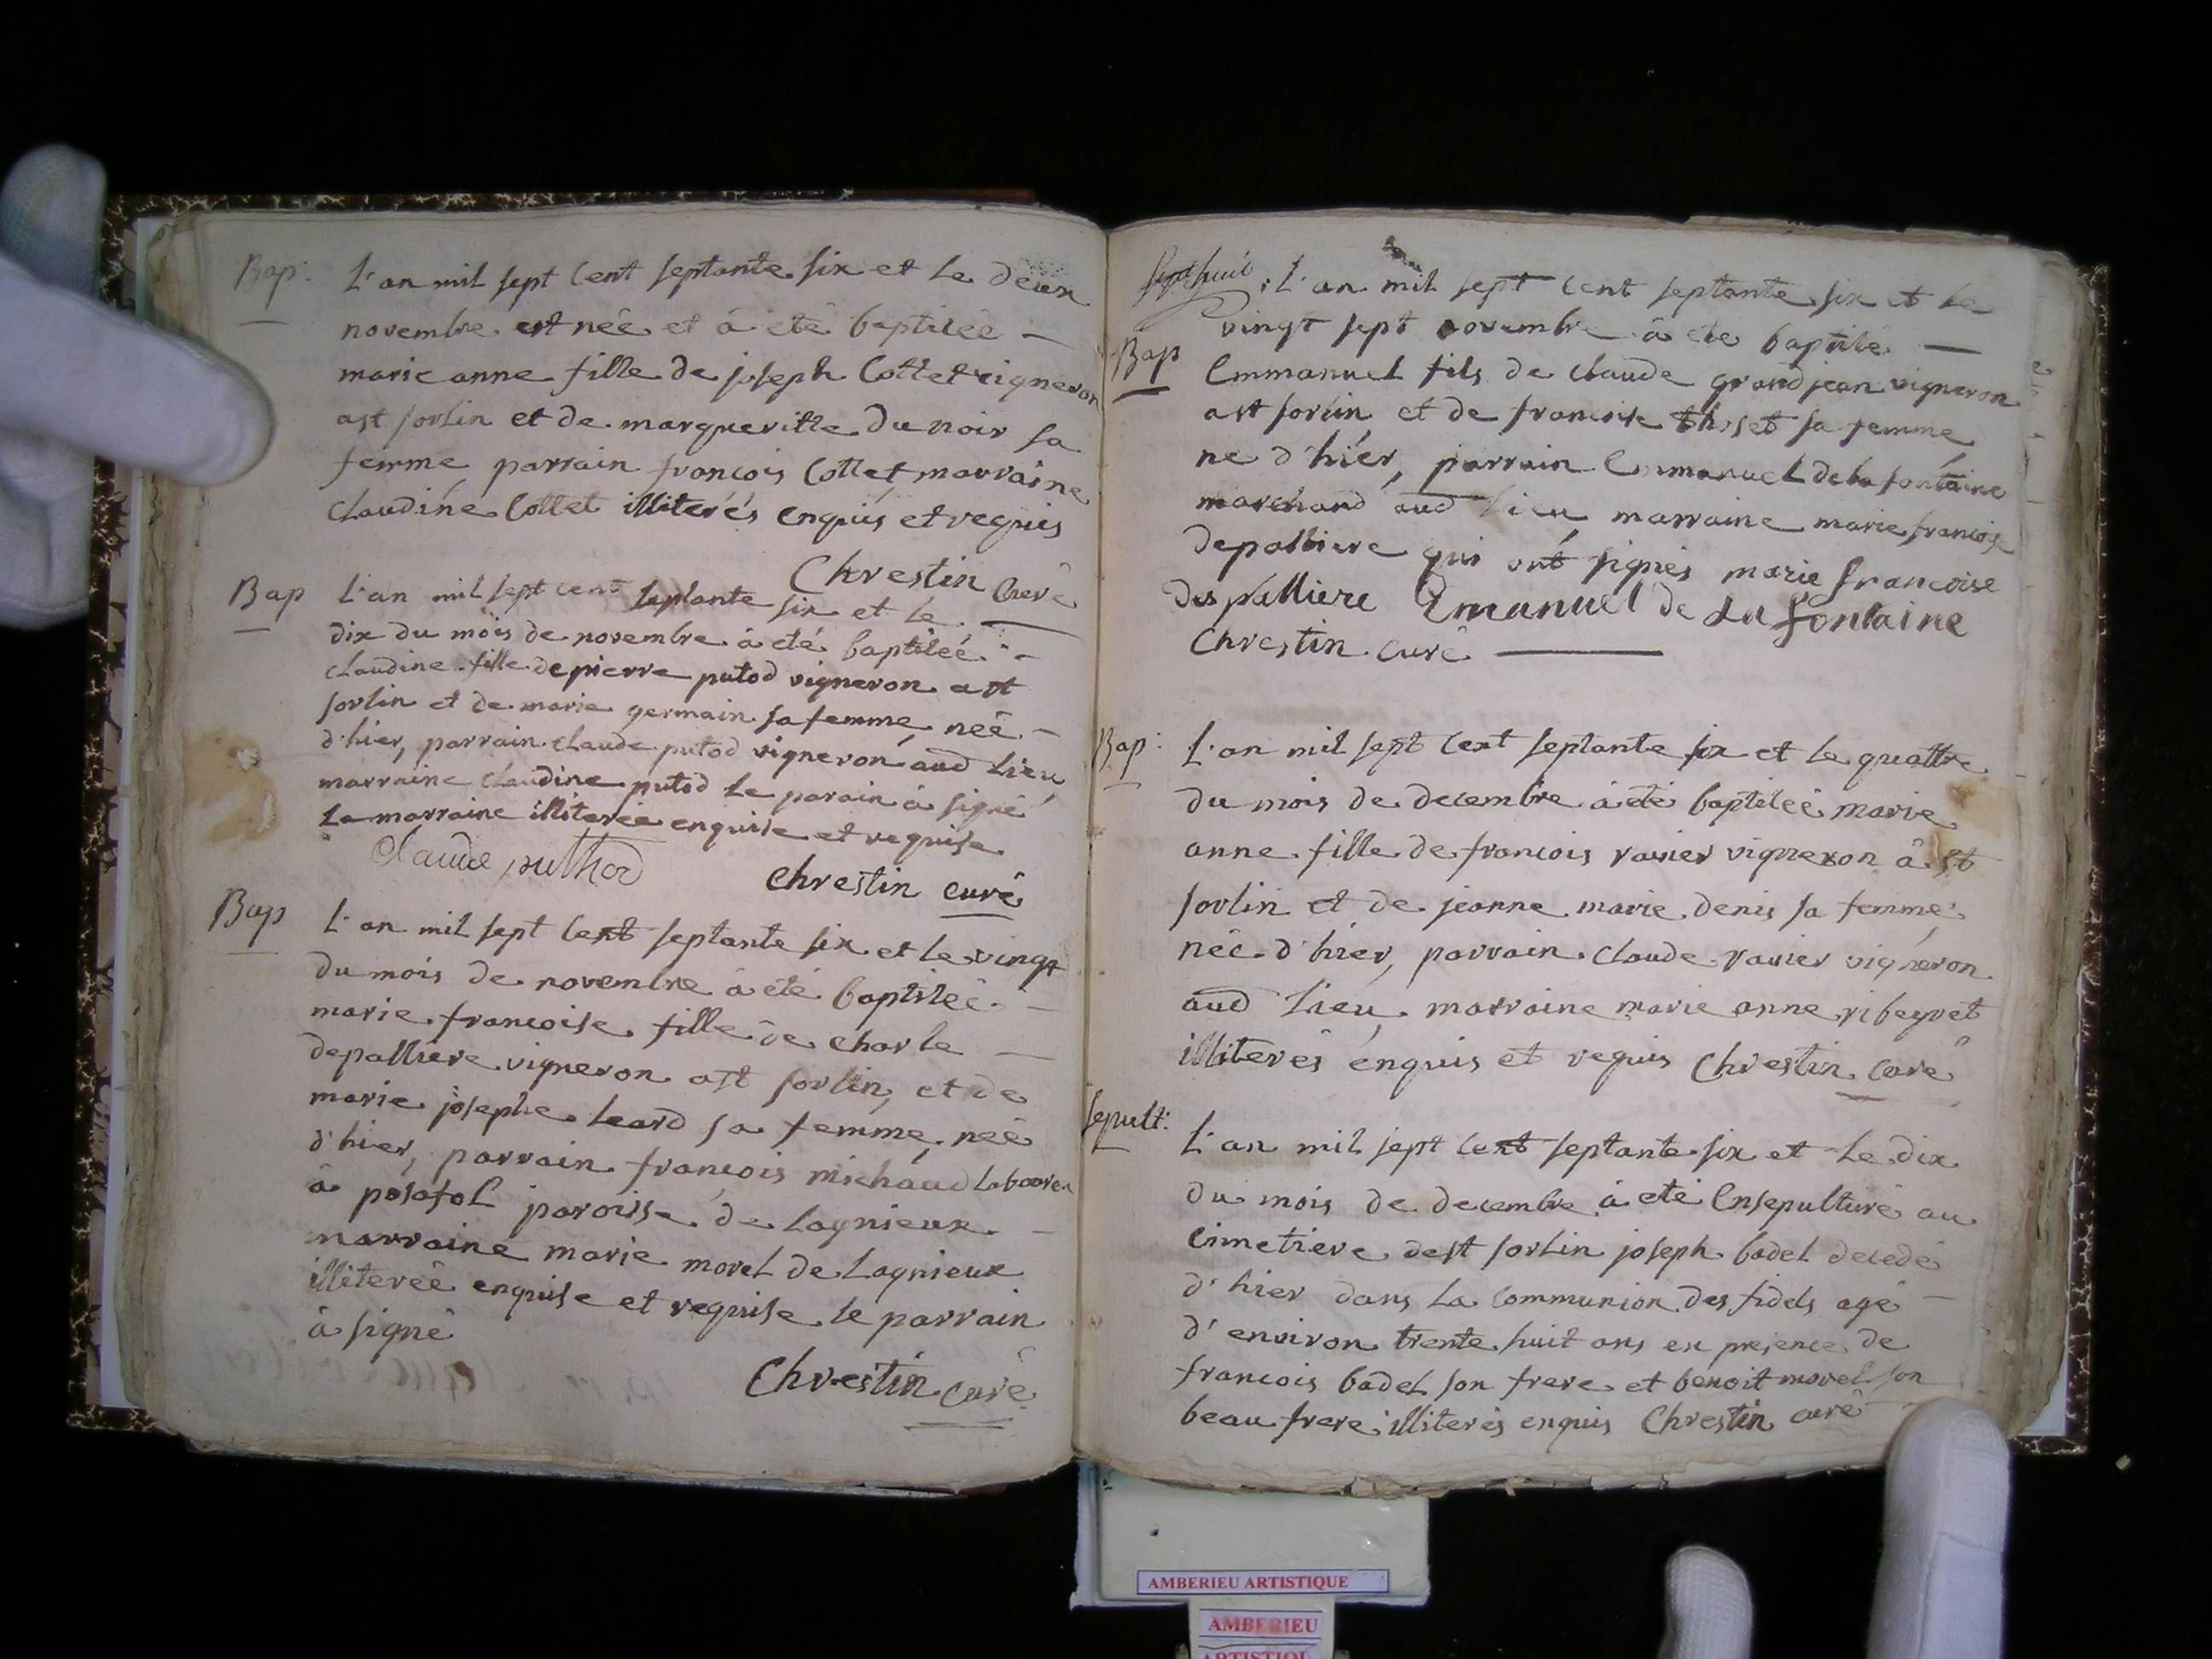 Bap: L'an mil sept cent septante six et le deux
novembre est neé et â eté baptiseé —
marie anne fille de joseph Collet vigneron
a st sorlin et de margueritte du noir sa
femme, parrain francois Collet marraine
claudine Collet illiterés enquis et requis
Chrestin Curé
Bap L'an mil sept cent septante six et le —
dix du mois de novembre â eté baptiseé —
claudine fille de pierre putod vigneron a st
sorlin et de marie germain sa femme, neé —
d'hier, parrain claude putod vigneron aud lieu,
marraine claudine putod le parain â signé
la marraine illiterée enquise et requise
Claude puthod Chrestin curé
Bap L'an mil sept cent septante six et le vingt
du mois de novembre â eté baptiseé —
marie francoise fille de charle —
depalliere vigneron a st sorlin, et de
marie josephe leard sa femme, neé
d'hier, parrain francois michaud laboureu
â posafol paroisse de lagnieux —
marraine marie morel de Lagnieux
illitereé enquise et requise le parrain
â signé
Chrestin curé
L'an mil sept cent septante six et le
vingt sept novembre â eté baptisé —
Bap Emmanuel fils de claude grandjean vigneron
a st sorlin et de francoise sa femme,
ne d'hiér, parrain Emmanuel de la fontaine
marchand aud lieu marraine marie francoise
depalliere qui ont signés marie francoise
despalliere Emanuel de La fontaine
Chrestin curé —
Bap: L'an mil sept cent septante six et le quattre
du mois de decembre â eté baptiseé marie
anne fille de francois ravier vigneron â st
sorlin et de jeanne marie denis sa femme,
neé d'hier, parrain claude ravier vigneron
aud lieu, marraine marie anne ribeyret
illiterés enquis et requis Chrestin curé
sepult: L'an mil sept cent septante six et le dix
du mois de decembre â eté Ensepulturé au
cimetiere de st sorlin joseph badel decedé
d'hier dans la communion des fidels agé —
d'environ trente huit ans en presence de
francois badel son frere et benoit morel son
beau frere illiterés enquis Chrestin curé
AMBERIEU ARTISTIQUE
AMBERIEU
ARTISTIQUE